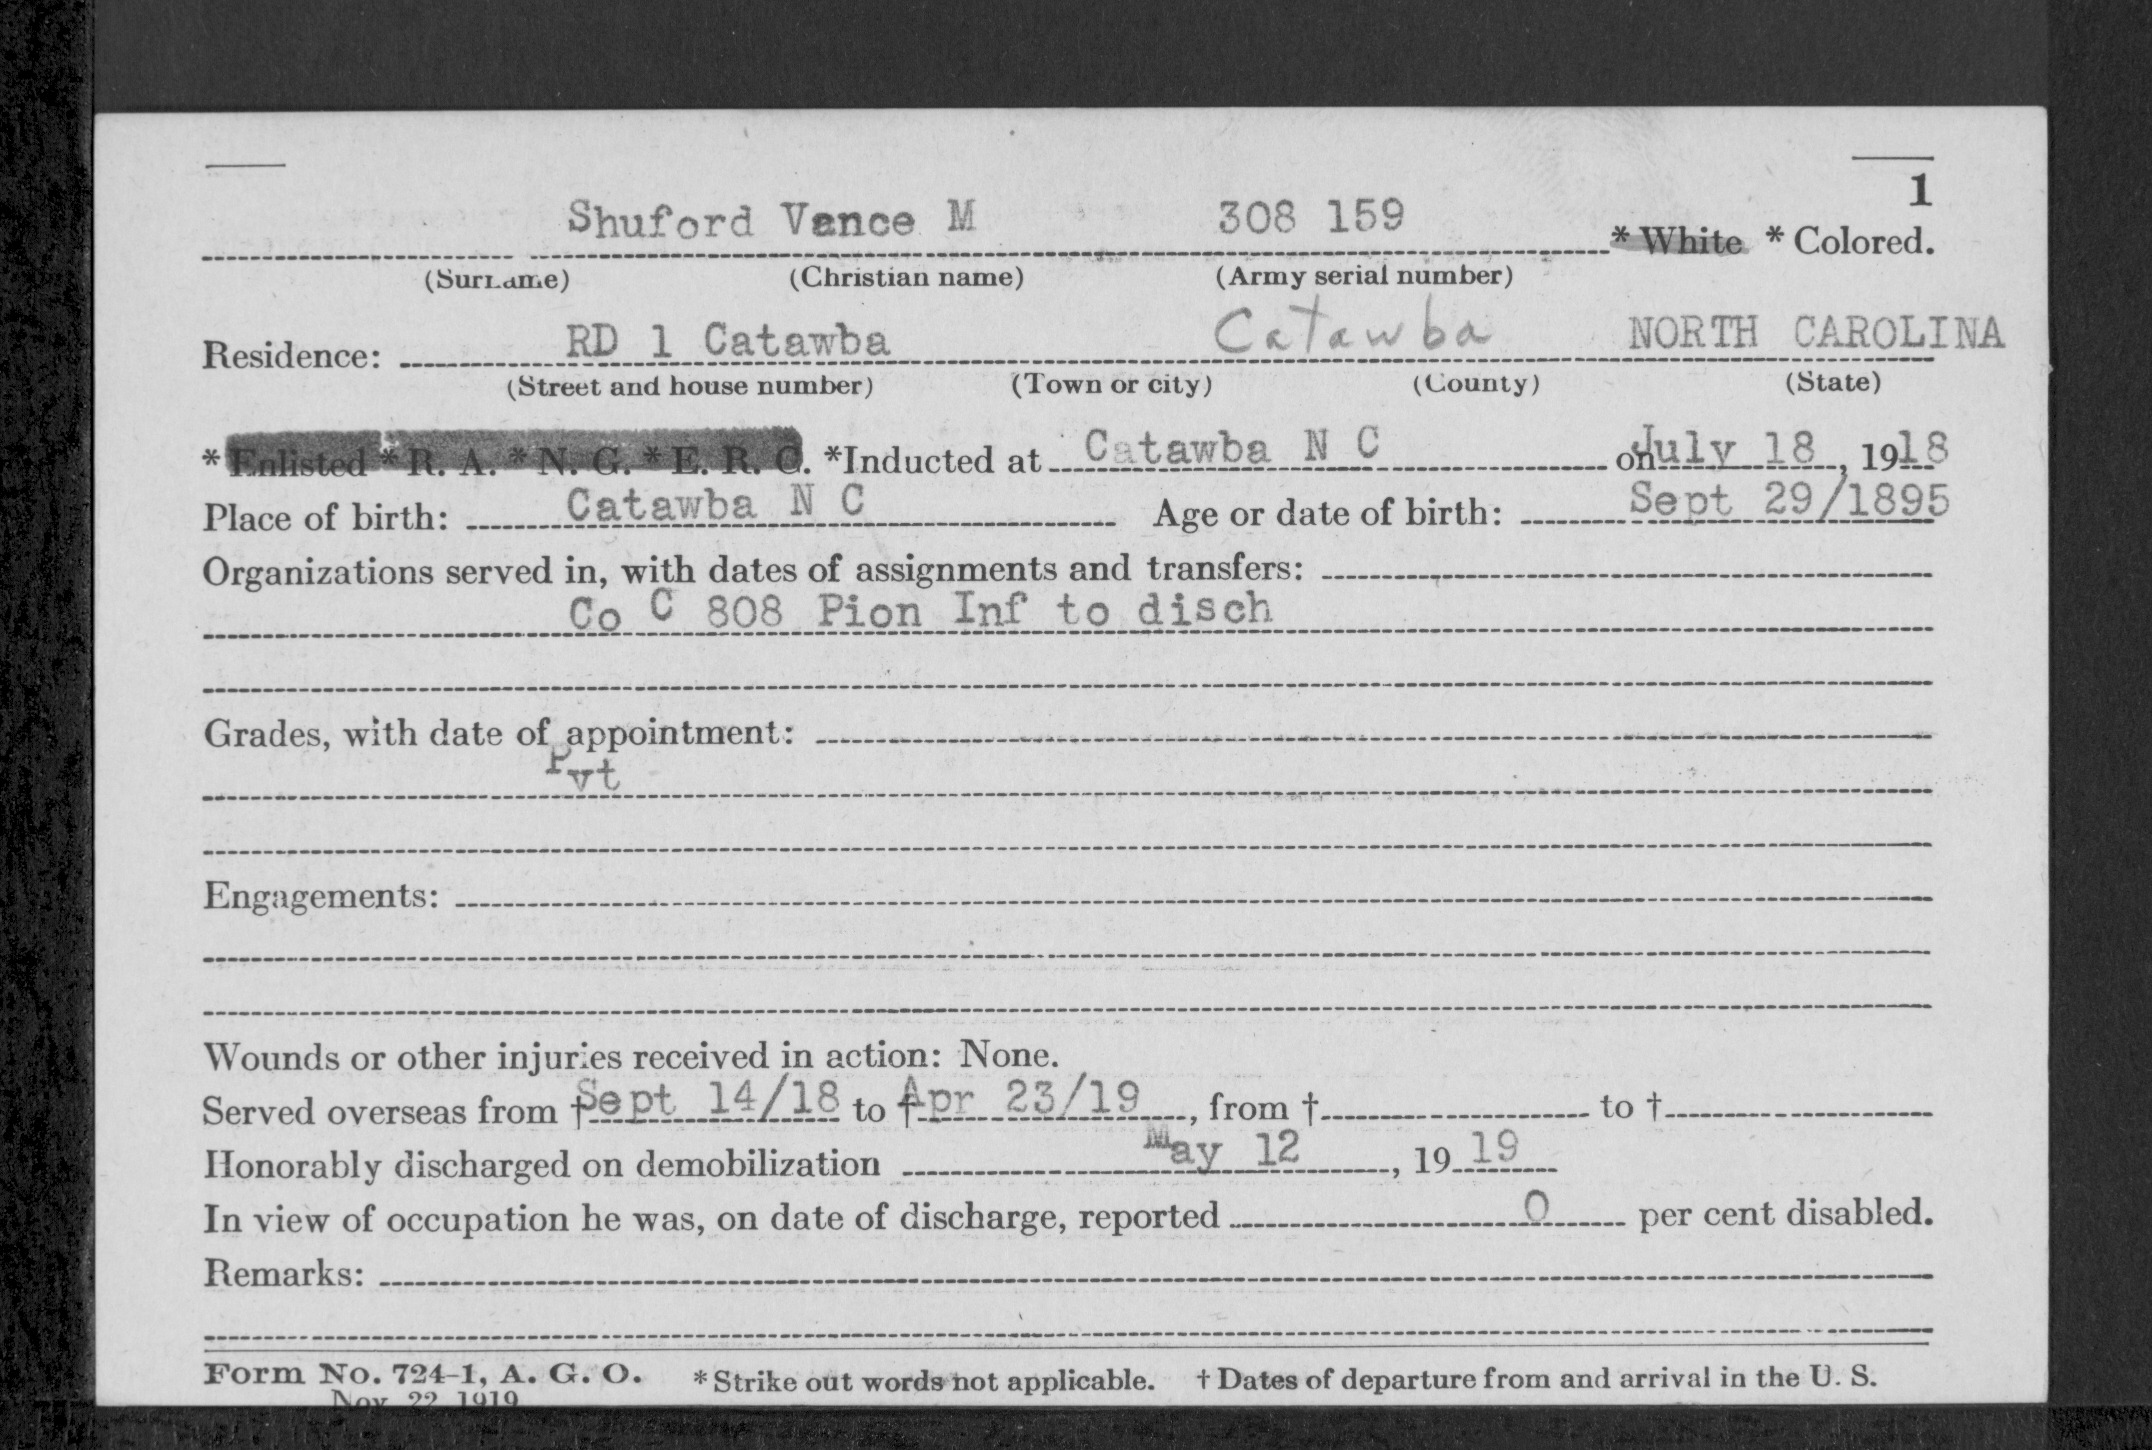 1
Shuford Vance M 308 159 * White * Colored.
(Surname) (Christian name) (Army serial number)
Residence: RD 1 Catawba Catawba NORTH CAROLINA
(Street and house number) (Town or city) (County) (State)
* Enlisted * R. A. * N. G. * E. R. C. *Inducted at Catawba N C on July 18, 1918
Place of birth: Catawba N C Age or date of birth: Sept 29/1895
Organizations served in, with dates of assignments and transfers:
Co C 808 Pion Inf to disch
Grades, with date of appointment:
Pvt
Engagements:
Wounds or other injuries received in action: None.
Served overseas from † Sept 14/18 to † Apr 23/19, from † to †
Honorably discharged on demobilization May 12, 19 19
In view of occupation he was, on date of discharge, reported 0 per cent disabled.
Remarks:
Form No. 724-1, A. G. O. * Strike out words not applicable. † Dates of departure from and arrival in the U. S.
Nov. 22, 1919